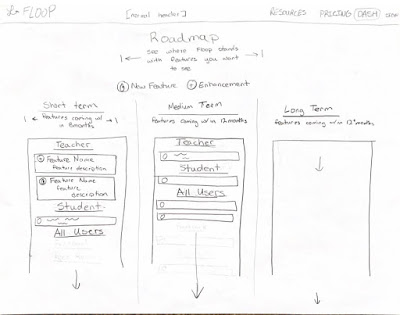 FLOOP
[normal header]
RESOURCES PRICING DASH
Roadmap
see where Floop stands
with features you want
to see
New Feature + Enhancement
Short term
features coming w/
in 8 months
Teacher
Feature Name
feature description
Feature Name
feature
description
Student
All Users
Medium Term
features coming w/in 12 months
Teacher
Student
All Users
Long Term
features coming w/in 12+ months